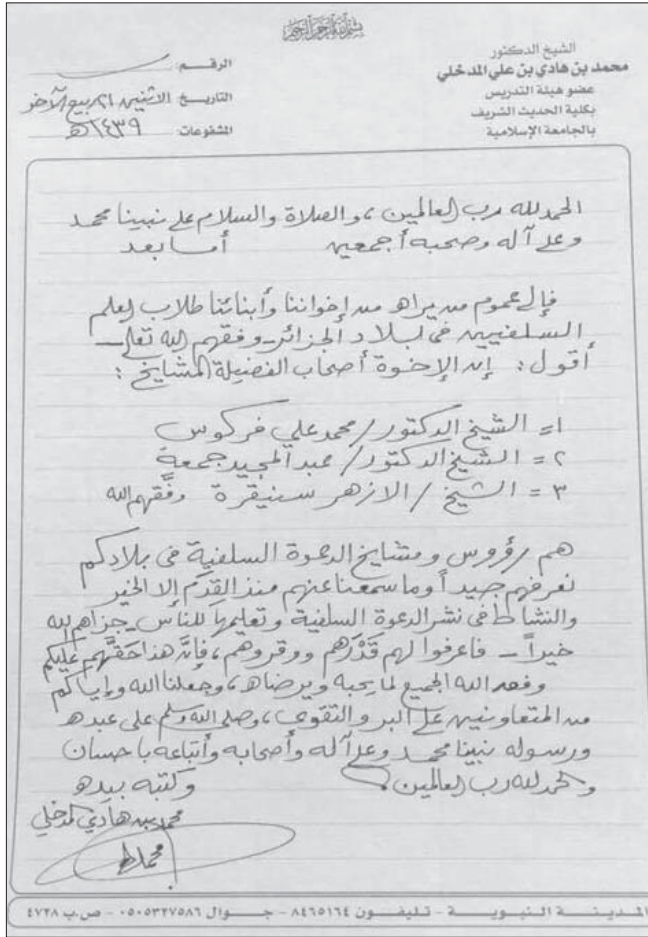 بسم الله الرحمن الرحيم
الشيخ الدكتور
محمد بن هادي بن علي المدخلي
عضو هيئة التدريس
بكلية الحديث الشريف
بالجامعة الإسلامية
الرقم:
التاريخ: الاثنين ٢١ ربيع الآخر
المشفوعات: ١٤٣٩هـ
الحمد لله رب العالمين، والصلاة والسلام على نبينا محمد
وعلى آله وصحبه أجمعين أما بعد
فإلى عموم من يراه من إخواننا وأبنائنا طلاب العلم
السلفيين في بلاد الجزائر - وفقهم الله تعالى -
أقول: إن الإخوة أصحاب الفضيلة المشايخ:
١= الشيخ الدكتور/ محمد علي فركوس
٢= الشيخ الدكتور/ عبد المجيد جمعة
٣= الشيخ/ الازهر سنيقرة وفَّقهم الله
هم رؤوس ومشايخ الدعوة السلفية في بلادكم
نعرفهم جيداً وما سمعنا عنهم منذ القِدَم إلا الخير
والنشاط في نشر الدعوة السلفية وتعليمها للناس - جزاهم الله
خيراً - فاعرفوا لهم قَدْرَهم ووقروهم، فإنَّ هذا حَقَّهم عليكم
وفق الله الجميع لما يحبه ويرضاه، وجعلنا الله وإياكم
من المتعاونين على البر والتقوى، وصلى الله وسلم على عبده
ورسوله نبينا محمد وعلى آله وأصحابه وأتباعه بإحسان
والحمد لله رب العالمين، وكتبه بيده
محمد بن هادي المدخلي
المدينة النبوية - تليفون ٨٤٦٥١٦٤ - جوال ٠٥٠٥٣٢٧٥٨٦ - ص.ب ٤٧٣٨